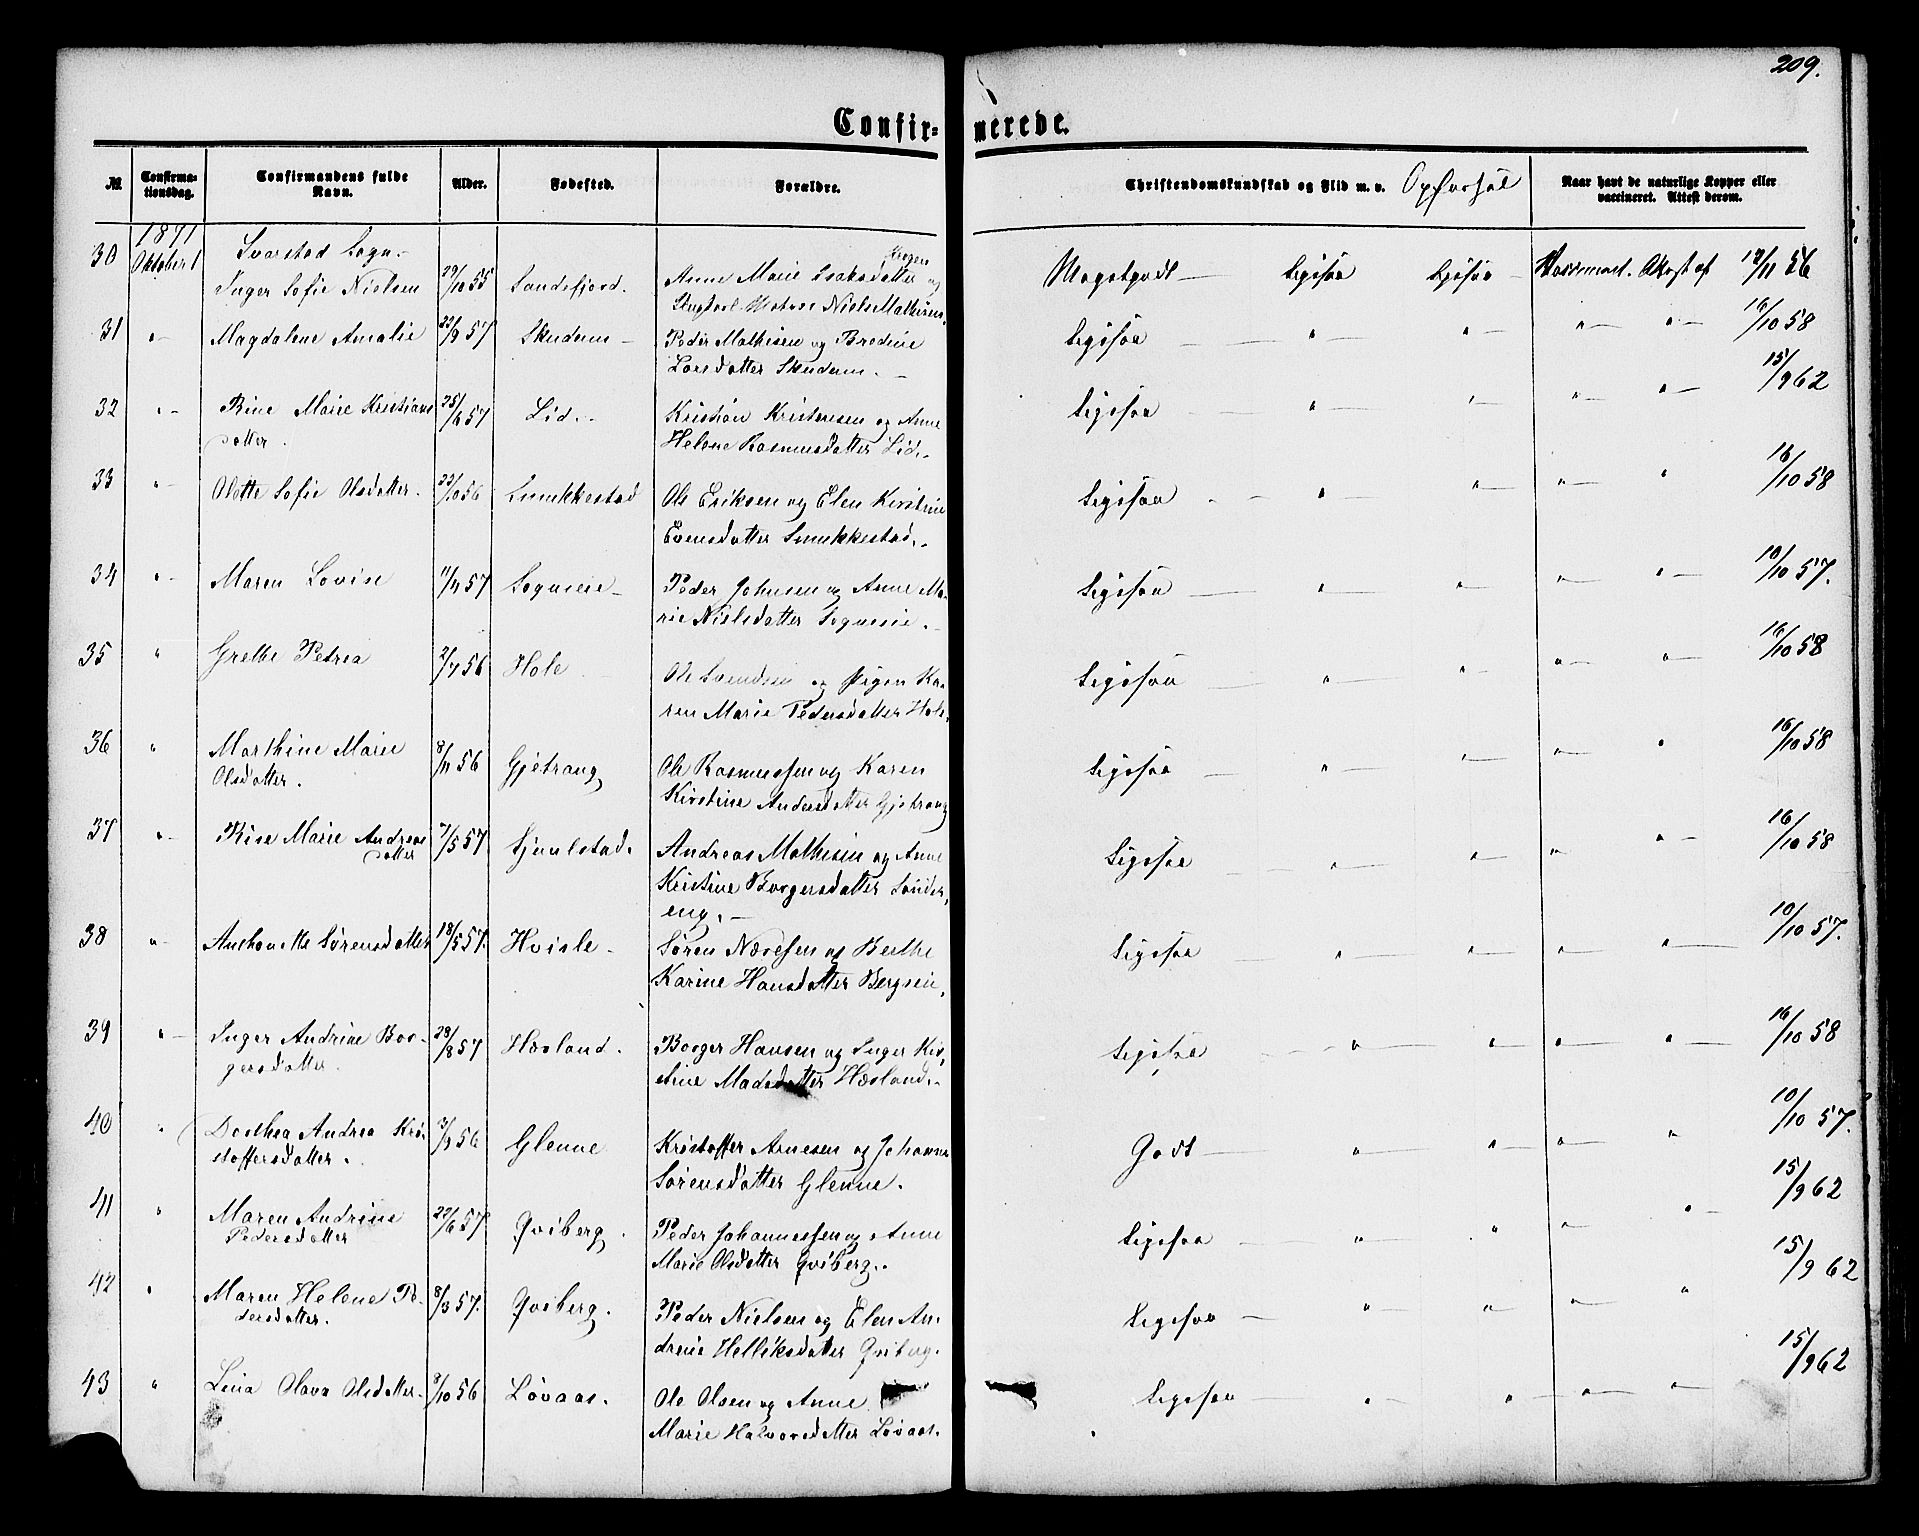 209.
Confir- merede.
№
Confirma-
tionsdag.
Confirmandens fulde
Navn.
Alder.
Fødested.
Forældre.
Christendomskundskab og Flid m. v. Opførsel
Naar havt de naturlige Kopper eller
vaccineret. Attest derom.
1871
Svarstad Sogn.
30 Oktober 1 Inger Sofie Nielsen 29/10 55 Sandefjord. Anne Marie Isaksdatter og
Matros Niels Mathisen. Megetgodt — Ligesaa Ligesaa — Vaccineret. Attest af 12/11 56
31 " Magdalene Amalie 22/9 57 Skuderu — Peder Mathisen og Bredine
Larsdatter Skuderu. — Ligesaa — " — " — " — " — 16/10 58
32 " Rine Marie Kristians
datter. 25/6 57 Lid. — Kristian Kristensen og Anne
Helene Rasmusdatter Lid. — Ligesaa — " — " — " — " — 15/9 62
33 " Olette Sofie Olsdatter. 22/10 56 Smukkestad Ole Eriksen og Elen Kirstine
Evensdatter Smukkestad. Ligesaa — " — " — " — " 16/10 58
34 " Maren Lovise 11/4 57 Sogneeie — Peder Johnsen og Anne Ma-
rie Nielsdatter Sogneeie. — Ligesaa — " — " — " — " — 10/10 57.
35 " Grethe Petrea 2/7 56 Hole Ole Svendsen og Pigen Ka-
ren Marie Pedersdatter Hole. Ligesaa — " — " — " — " — 16/10 58
36 " Marthine Marie
Olsdatter. 8/11 56 Gjetrang Ole Rasmussen og Karen
Kirstine Andersdatter Gjetrang Ligesaa — " — " — " — " 16/10 58
37 " Rise Marie Andreas
datter 7/5 57 Gjuulstad. Andreas Mathisen og Anne
Kristine Borgersdatter Sønder,
eng. — Ligesaa — " — " — " — " — 16/10 58
38 " Anthonette Sørensdatter 18/5 57. Hvisle — Søren Næresen og Berthe
Karine Hansdatter Bergseie, Ligesaa — " — " — " — " — 10/10 57.
39 " Inger Andrine Bor-
gersdatter. 28/8 57 Hæsland. Borger Hansen og Inger Kir-
stine Madsdatter Hæsland. — Ligesaa — " — " — " — " — 16/10 58
40 " Dorthea Andrea Kri-
stoffersdatter. 3/9 56 Glenne Kristoffer Arnesen og Johanne
Sørensdatter Glenne. Godt — " — " — " — " 10/10 57.
41 " Maren Andrine
Pedersdatter 22/6 57 Qviberg. Peder Johannessen og Anne
Marie Olsdatter Qviberg. Ligesaa — " — " — " — " — 15/9 62
42 " Maren Helene Pe-
dersdatter. 8/3 57. Qviberg. Peder Nielsen og Elen An-
drine Helliksdatter Qviberg. Ligesaa — " — " — " — " 15/9 62
43 " Lina Olava Olsdatter. 8/10 56 Løvaas. Ole Olsen og Anne
Marie Halvorsdatter Løvaas. Ligesaa — " — " — " — " — 15/9 62